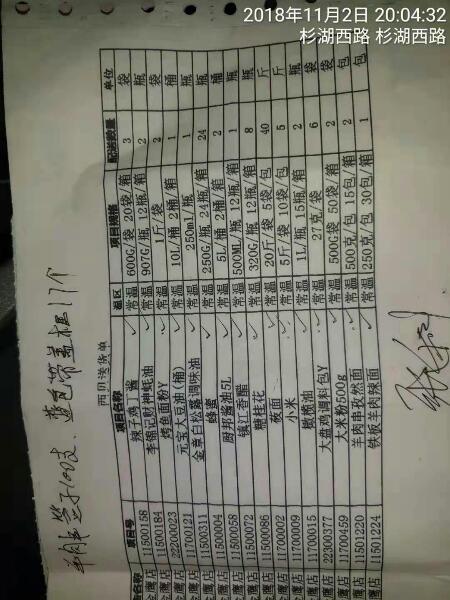 2018年11月2日 20:04:32
杉湖西路 杉湖西路
西贝送货单
店名称 项目号 项目名称 温区 项目规格 配送数量 单位
金鹰店 11500158 辣子鸡丁酱 常温 600G/袋 20袋/箱 3 袋
金鹰店 11500184 李锦记财神蚝油 常温 907G/瓶 12瓶/箱 2 瓶
金鹰店 22200023 烤鱼面粉Y 常温 1斤/袋 2 袋
金鹰店 11700121 元宝大豆油(桶) 常温 10L/桶 2桶/箱 1 桶
金鹰店 11500311 金章白松露调味油 常温 250ml/瓶 1 瓶
金鹰店 11500004 蜂蜜 常温 250G/瓶 24瓶/箱 24 瓶
金鹰店 11500058 厨邦酱油5L 常温 5L/桶 2桶/箱 2 桶
金鹰店 11500072 镇江香醋 常温 500ML/瓶 12瓶/箱 1 瓶
金鹰店 11500086 糖桂花 常温 320G/瓶 12瓶/箱 8 瓶
金鹰店 11700002 莜面 常温 20斤/袋 5袋/包 40 斤
金鹰店 11700009 小米 常温 5斤/袋 10袋/包 5 斤
金鹰店 11700015 橄榄油 常温 1L/瓶 15瓶/箱 2 瓶
金鹰店 22300377 大盘鸡调料包Y 常温 27克/袋 6 袋
金鹰店 11700459 大米粉500g 常温 500G袋 50袋/箱 2 袋
金鹰店 11501220 羊肉串孜然面 常温 500克/包 15包/箱 2 包
金鹰店 11501224 铁板羊肉辣面 常温 250克/包 30包/箱 1 包
蓝色带盖框17个